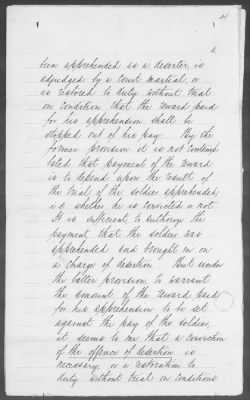 4
been apprehended as a deserter, is
adjudged by a court martial, or
is restored to duty without trial
on condition that the reward paid
for his apprehension shall be
stopped out of his pay. By the
former provision it is not contem-
lated that payment of the reward
is to depend upon the result of
the trial of the soldier apprehended
i.e. whether he is convicted or not.
It is sufficient, to authorize the
payment, that the soldier was
apprehended and brought in on
a charge of desertion. But under
the latter provision, to warrant
the amount of the reward paid
for his apprehension to be set
against the pay of the soldier,
it seems to me that a conviction
of the offence of desertion is
necessary, or a restoration to
duty without trial on conditions